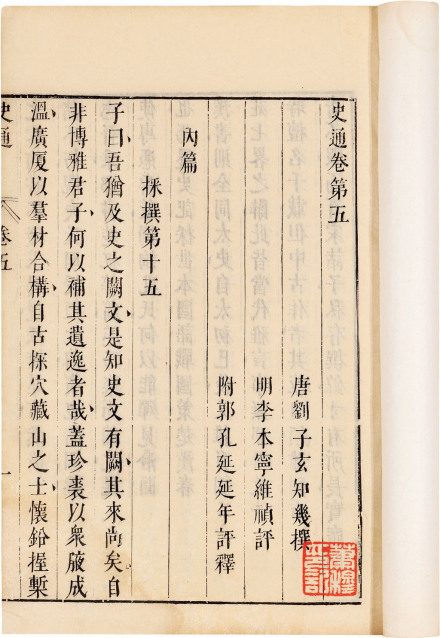 史通卷第五
唐劉子玄知幾撰
明李本寧維禎評
附郭孔延延年評釋
內篇
採撰第十五
子曰吾猶及史之闕文是知史文有闕其來尚矣自
非博雅君子何以補其遺逸者哉蓋珍裘以衆腋成
溫廣厦以羣材合構自古探穴藏山之士懷鉛握槧
史通
卷五
一